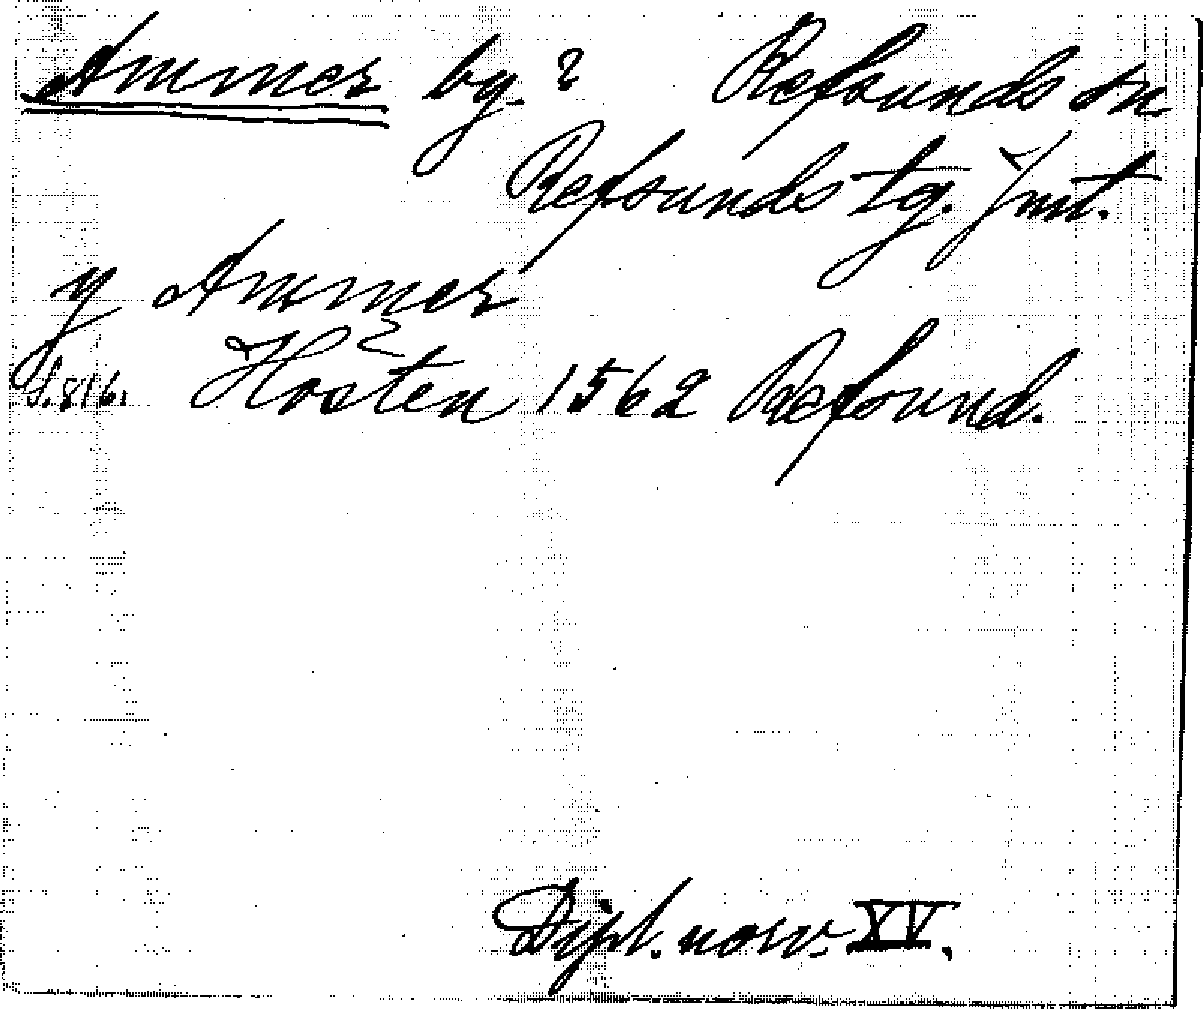 Ammer by? Refsunds sn
Refsunds tg. Jmt.
y Ammer
S. 816. Hosten 1562 Refsund.
Dipl. norv. XV.